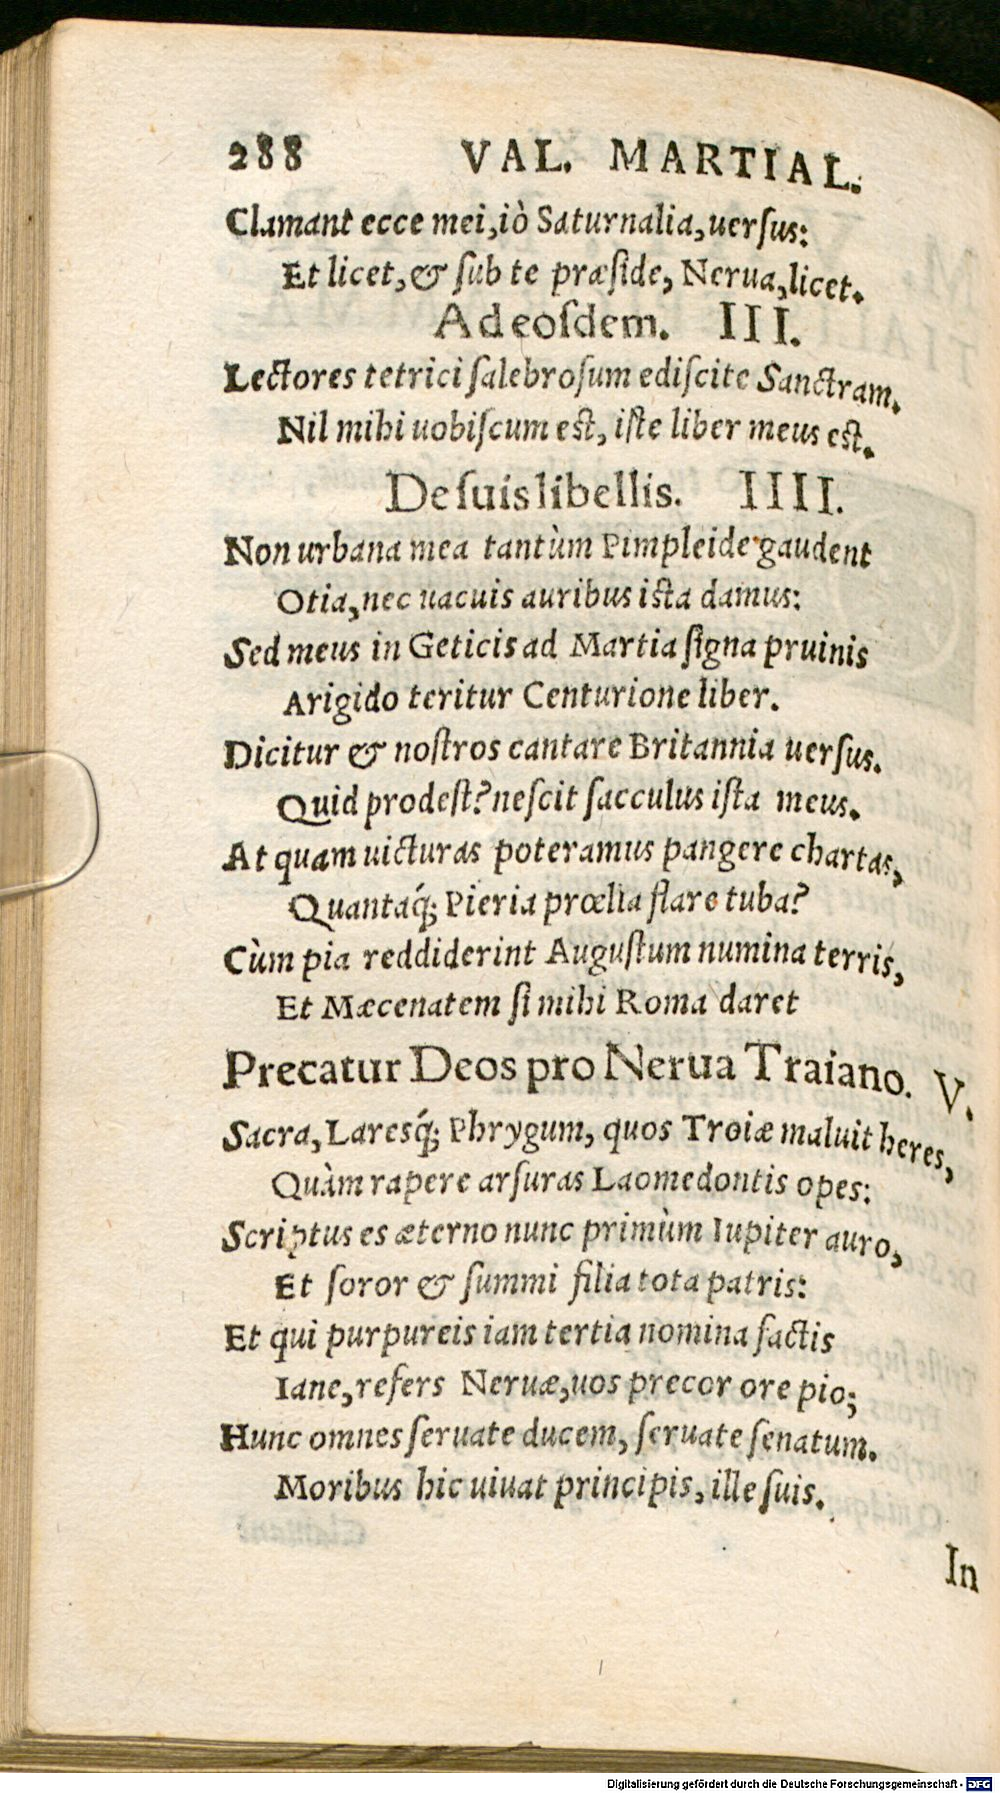 288 VAL. MARTIAL.
Clamant ecce mei, iò Saturnalia, uersus:
Et licet, & sub te præside, Nerua, licet.
Ad eosdem. III.
Lectores tetrici salebrosum ediscite Sanctram.
Nil mihi uobiscum est, iste liber meus est.
De suis libellis. IIII.
Non urbana mea tantùm Pimpleide gaudent
Otia, nec uacuis auribus ista damus:
Sed meus in Geticis ad Martia signa pruinis
A rigido teritur Centurione liber.
Dicitur & nostros cantare Britannia uersus.
Quid prodest? nescit sacculus ista meus.
At quam uicturas poteramus pangere chartas,
Quantaq́; Pieria prœlia flare tuba?
Cùm pia reddiderint Augustum numina terris,
Et Mæcenatem si mihi Roma daret
Precatur Deos pro Nerua Traiano. V.
Sacra, Laresq́; Phrygum, quos Troiæ maluit heres,
Quàm rapere arsuras Laomedontis opes:
Scriptus es æterno nunc primùm Iupiter auro,
Et soror & summi filia tota patris:
Et qui purpureis iam tertia nomina factis
Iane, refers Neruæ, uos precor ore pio;
Hunc omnes seruate ducem, seruate senatum.
Moribus hic uiuat principis, ille suis.
In
Digitalisierung gefördert durch die Deutsche Forschungsgemeinschaft - DFG